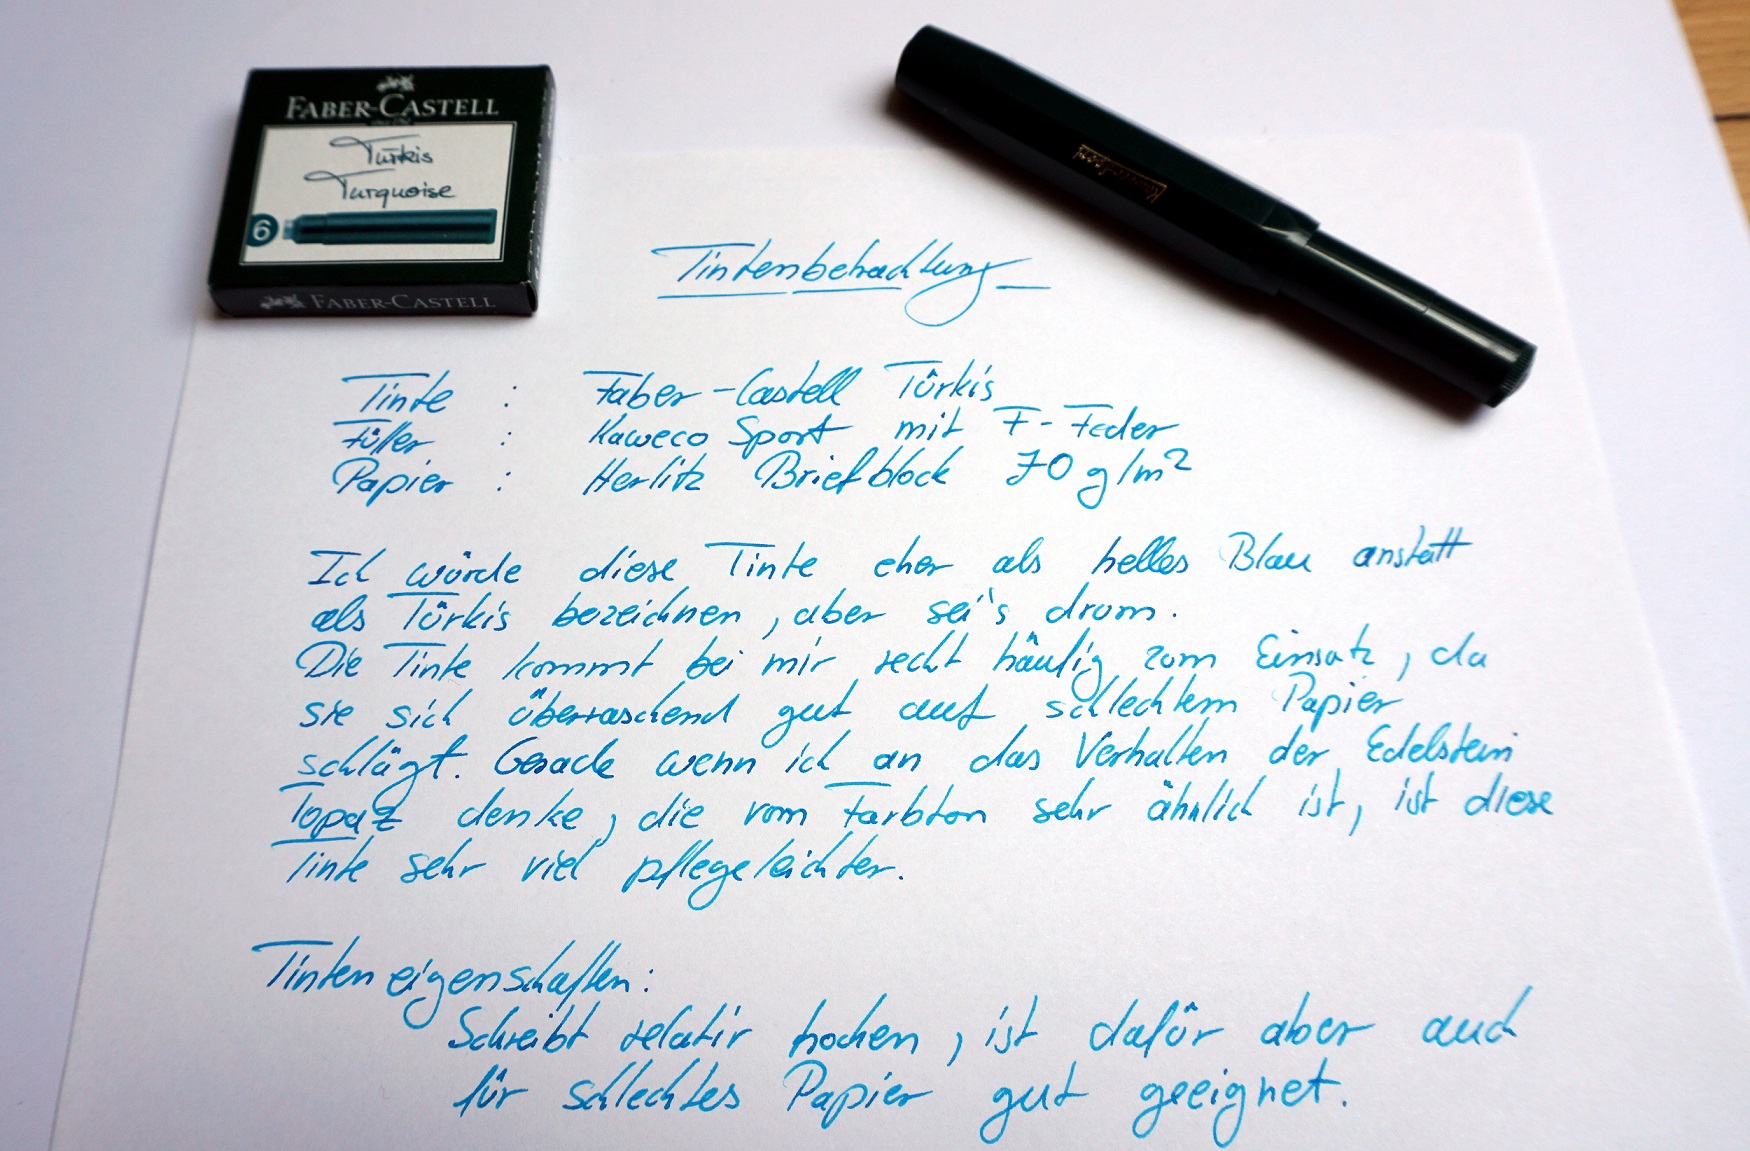 FABER-CASTELL
Türkis
Turquoise
6
FABER-CASTELL
Kaweco Sport
Tintenbetrachtung
Tinte : Faber-Castell Türkis
Füller : Kaweco Sport mit F-Feder
Papier : Herlitz Briefblock 70 g/m²
Ich würde diese Tinte eher als helles Blau anstatt
als Türkis bezeichnen, aber sei's drum.
Die Tinte kommt bei mir recht häufig zum Einsatz, da
sie sich überraschend gut auf schlechtem Papier
schlägt. Gerade wenn ich an das Verhalten der Edelstein
Topaz denke, die vom Farbton sehr ähnlich ist, ist diese
Tinte sehr viel pflegeleichter.
Tinteneigenschaften:
Schreibt relativ trocken, ist dafür aber auch
für schlechtes Papier gut geeignet.